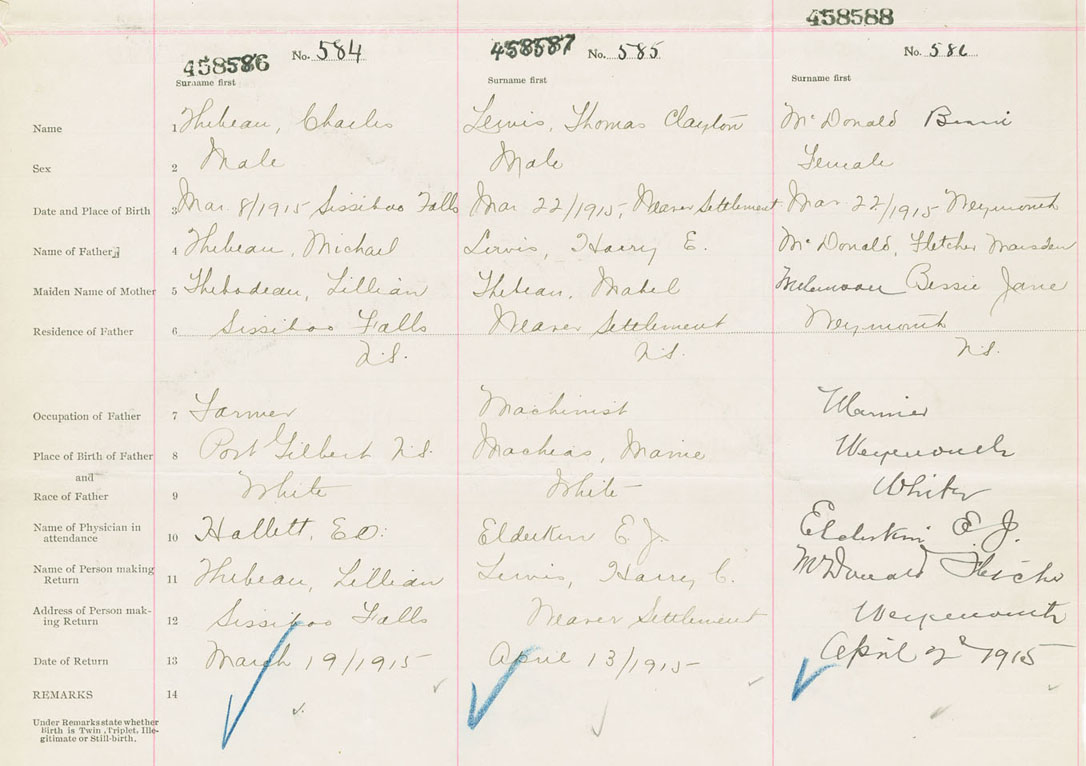 458586 No. 584 458587 No. 585 458588 No. 586
Surname first Surname first Surname first
Name 1 Thibeau, Charles Lewis, Thomas Clayton McDonald
Sex 2 Male Male Female
Date and Place of Birth 3 Mar 8/1915 Sissiboo Falls Mar 22/1915, Weaver Settlement Mar 22/1915 Weymouth
Name of Father 4 Thibeau, Michael Lewis, Harry E. McDonald, Fletcher Marsden
Maiden Name of Mother 5 Thebodeau, Lillian Thibeau, Mabel Bessie Jane
Residence of Father 6 Sissiboo Falls Weaver Settlement Weymouth
N.S. N.S. N.S.
Occupation of Father 7 Farmer Machinist
Place of Birth of Father 8 Port Gilbert N.S. Machias, Maine Weymouth
and
Race of Father 9 White White White
Name of Physician in
attendance 10 Hallett, E.O. Elderkin E. J. Elderkin E. J.
Name of Person making
Return 11 Thibeau, Lillian Lewis, Harry E. McDonald Fletcher
Address of Person mak-
ing Return 12 Sissiboo Falls Weaver Settlement Weymouth
Date of Return 13 March 19/1915 April 13/1915 April 2 1915
REMARKS 14
Under Remarks state whether
Birth is Twin, Triplet, Ille-
gitimate or Still-birth.